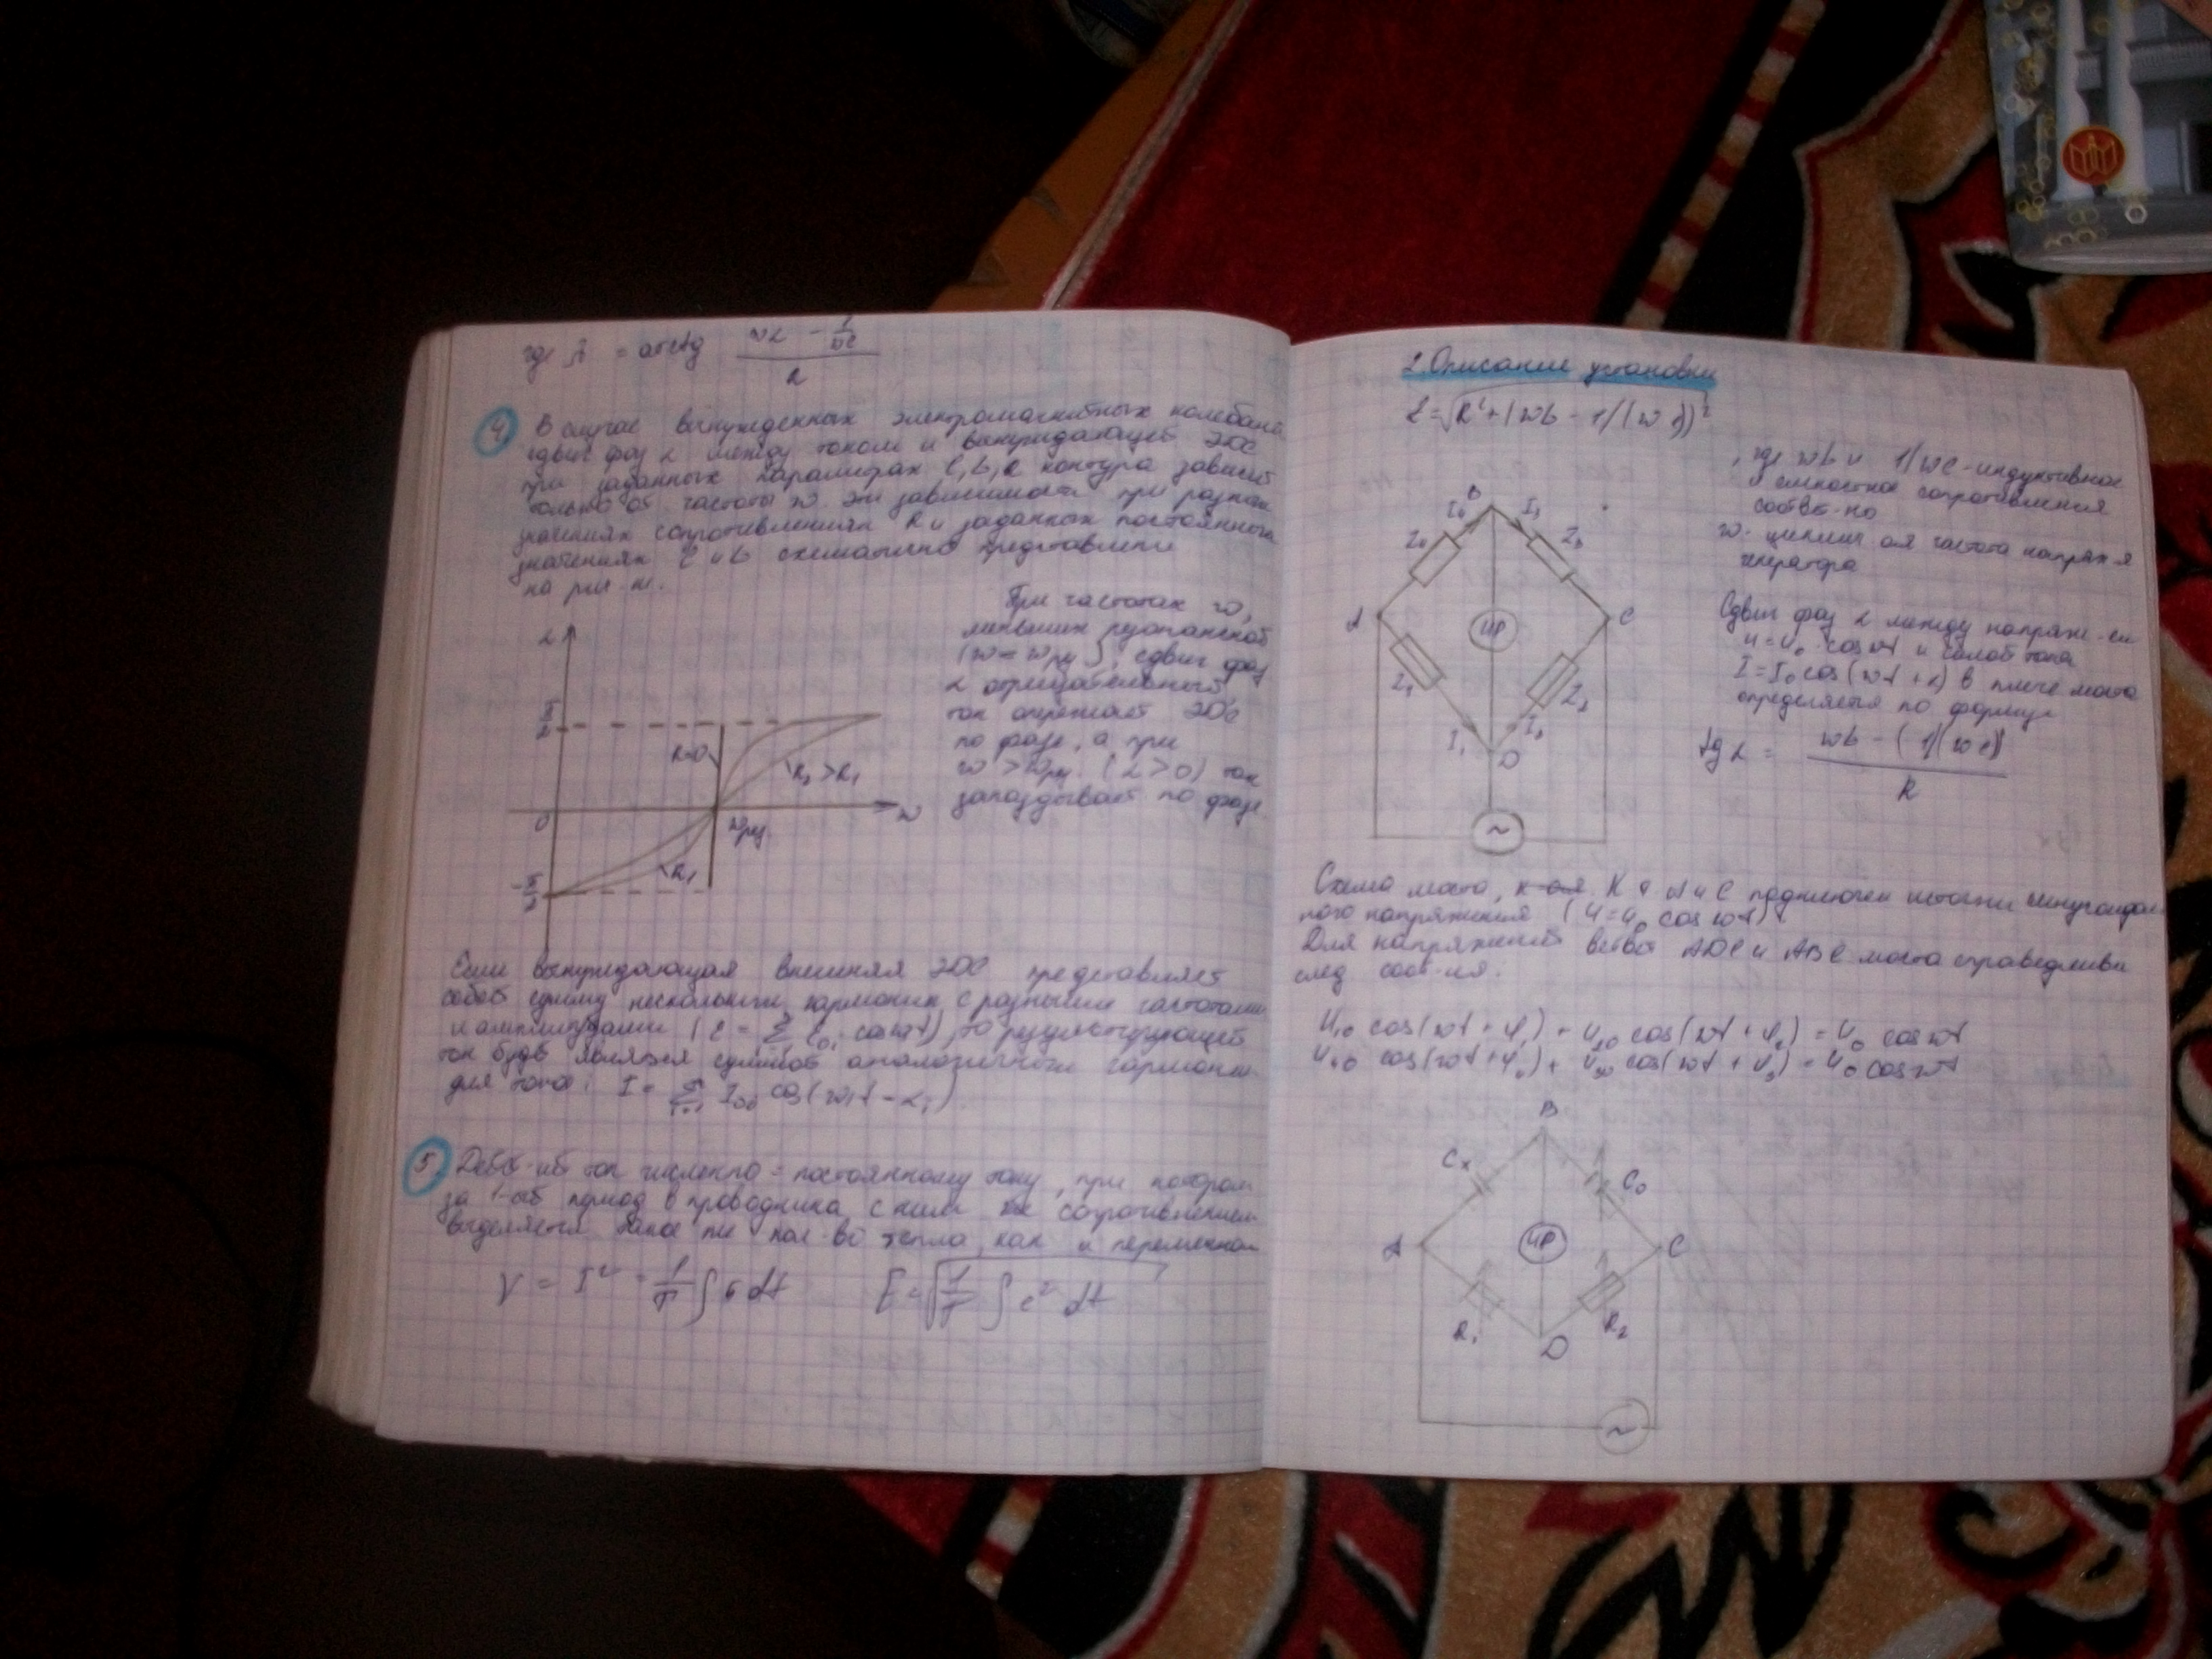 где = arctg
ωL - 1/ωC
R
4 В случае вынужденных электромагнитных колебан.
сдвиг фаз α между током и вынуждающей ЭДС
при заданных параметрах C, L, R контура зависит
только от частоты ω. Эти зависимости при разных
значениях сопротивления R и заданных постоянных
значениях C и L схематично представлены
на рис.
При частотах ω,
меньших резонансной
(ω = ωрез), сдвиг фаз
α отрицательный
ток опережает ЭДС
по фазе, а при
ω > ωрез (α > 0) ток
запаздывает по фазе
α
π/2
R=0
R2 > R1
0
ωрез
ω
R1
-π/2
Если вынуждающая внешняя ЭДС представляет
собой сумму нескольких гармоник с разными частотами
и амплитудами (ε = Σ ε0i cosωit), то результирующей
ток будет являться суммой аналогичных гармоник
для тока: I = Σ I0i cos(ωit - αi)
5. Действ-ий ток численно = постоянному току, при котором
за 1-ый период в проводника с ним же сопротивлением
выделяется такое же кол-во тепла, как и переменном
= I² = 1/T ∫ dt
E = √1/T ∫ e² dt
2. Описание установки
Z = √R² + (ωL - 1/(ωC))²
, где ωL и 1/ωC - индуктивное
и емкостное сопротивления
соотв-но
ω - цикличая частота напряж-я
генератора
B
I4 I3
Z4 Z3
A ИР C
Z1 Z2
I1 I2
D
~
Сдвиг фаз α между напряже-ем
U = U0 cosωt и силой тока
I = I0 cos(ωt + α) в плече моста
определяется по формуле
tg α =
ωL - (1/(ωC))
R
Схема моста, К т A и C подключен источник синусоидаль
ного напряжения (U = U0 cos ωt).
Для напряжений ветвей ADC и ABC моста справедливы
след соот-ия:
U10 cos(ωt + φ1) + U20 cos(ωt + φ2) = U0 cosωt
U40 cos(ωt + φ4) + U30 cos(ωt + φ3) = U0 cosωt
B
Cx C0
A ИР C
R1 R2
D
~